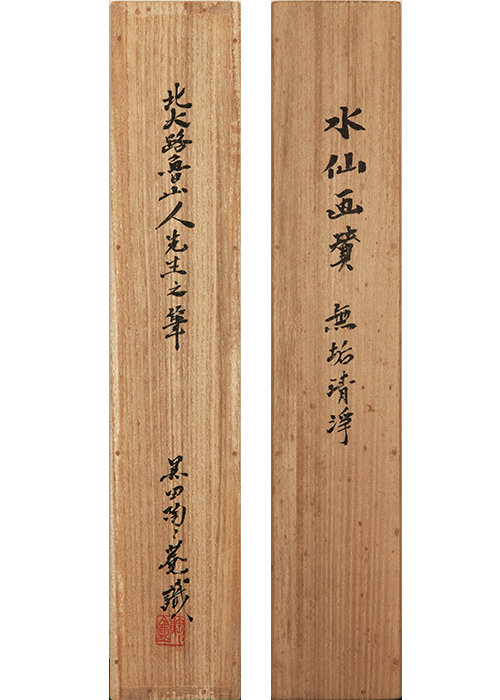 水仙画賛 無垢清浄
北大路魯山人先生之筆
黒田陶々菴識